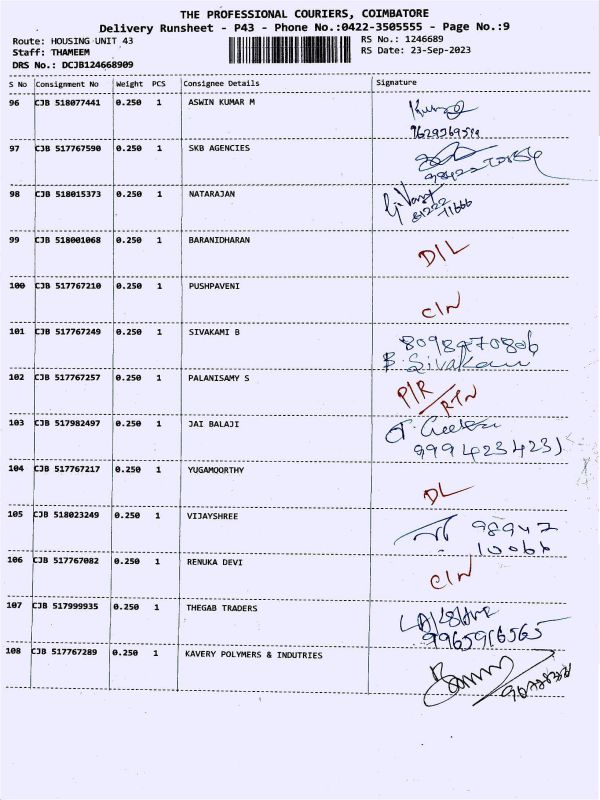 THE PROFESSIONAL COURIERS, COIMBATORE
Delivery Runsheet - P43 - Phone No.:0422-3505555 - Page No.:9
Route: HOUSING UNIT 43 RS No.: 1246689
Staff: THAMEEM RS Date: 23-Sep-2023
DRS No.: DCJB124668909
S No Consignment No Weight PCS Consignee Details Signature
96 CJB 518077441 0.250 1 ASWIN KUMAR M
97 CJB 517767590 0.250 1 SKB AGENCIES
98 CJB 518015373 0.250 1 NATARAJAN
99 CJB 518001068 0.250 1 BARANIDHARAN D/L
100 CJB 517767210 0.250 1 PUSHPAVENI C/N
101 CJB 517767249 0.250 1 SIVAKAMI B
B. Sivakami
102 CJB 517767257 0.250 1 PALANISAMY S P/R / RTN
103 CJB 517982497 0.250 1 JAI BALAJI
9994234231
104 CJB 517767217 0.250 1 YUGAMOORTHY DL
105 CJB 518023249 0.250 1 VIJAYSHREE 98947
10066
106 CJB 517767082 0.250 1 RENUKA DEVI C/N
107 CJB 517999935 0.250 1 THEGAB TRADERS
9965916565
108 CJB 517767289 0.250 1 KAVERY POLYMERS & INDUTRIES